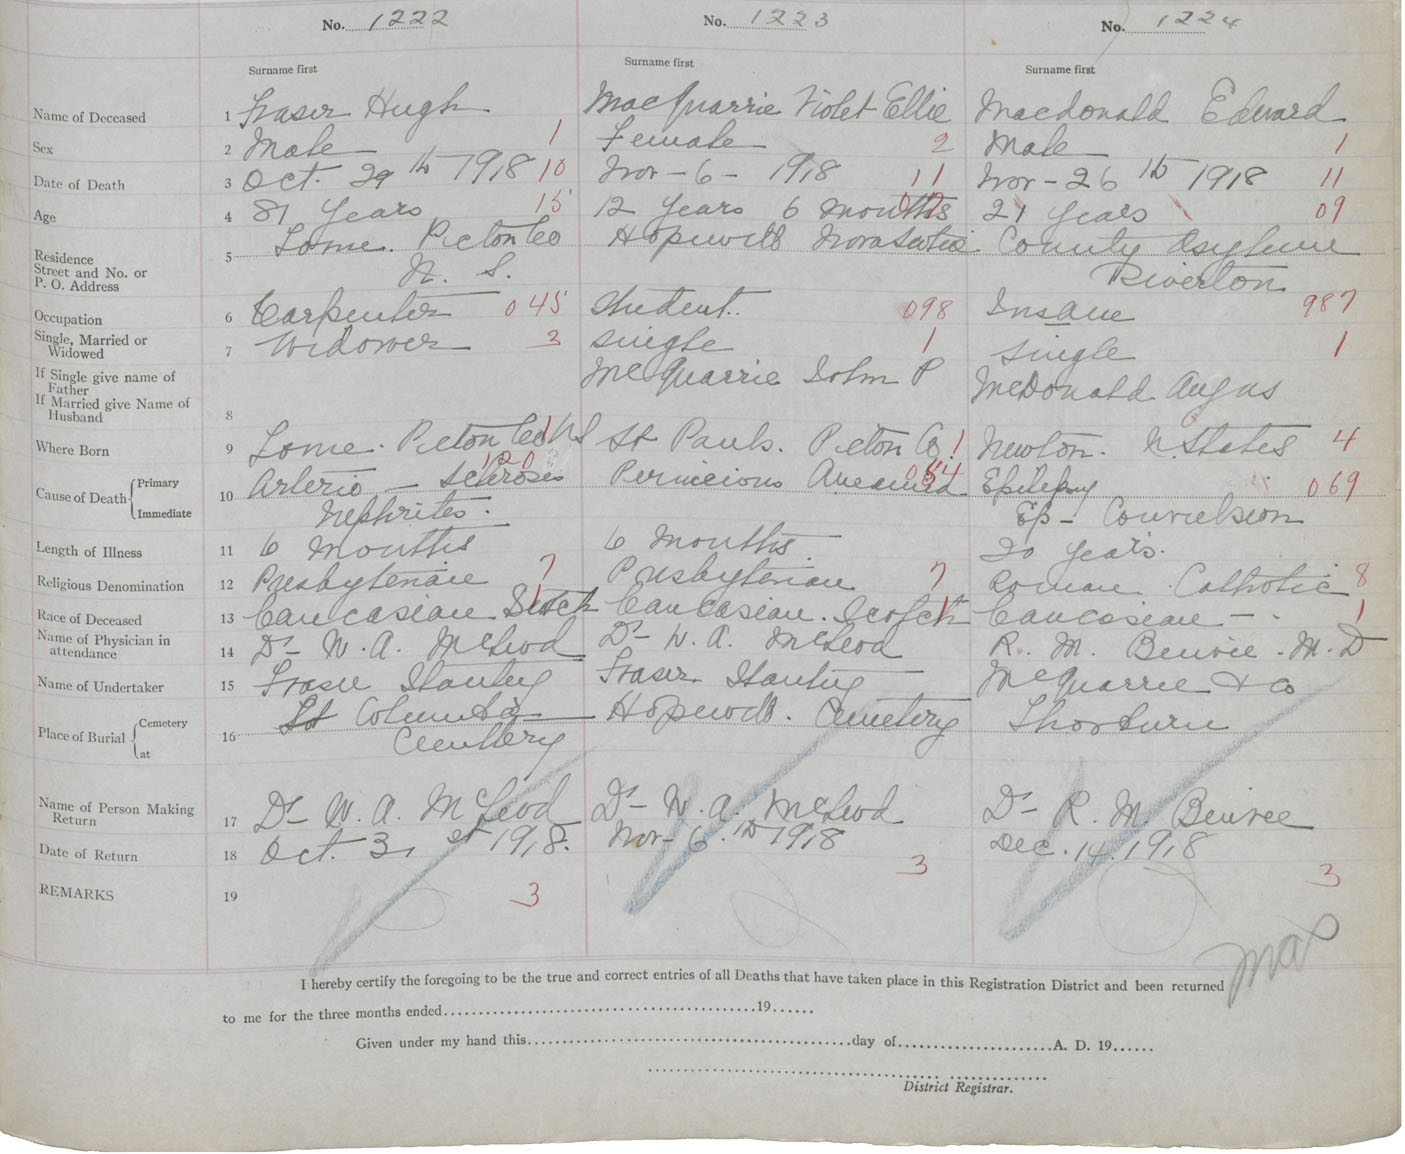 No. 1222 No. 1223 No. 1224
Surname first Surname first Surname first
Name of Deceased 1 Fraser Hugh MacQuarrie Violet Ellie Macdonald Edward
Sex 2 Male 1 Female 2 Male 1
Date of Death 3 Oct. 29th 1918 10 Nov-6-1918 11 Nov-26th 1918 11
Age 4 81 Years 15 12 Years 6 Months 21 years 09
Residence Street and No. or P. O. Address 5 Lorne. Pictou Co Hopewell Nova Scotia County Asylum
N. S. Riverton
Occupation 6 Carpenter 045 Student. 098 Insane 987
Single, Married or Widowed 7 Widower 3 Single 1 Single 1
If Single give name of Father
If Married give Name of Husband 8 McQuarrie John P McDonald Angus
Where Born 9 Lorne. Pictou Co NS 1 St Pauls. Pictou Co. 1 Newton. U. States 4
Cause of Death { Primary 10 Arterio - Sclerosis 120 Pernicious Anaemia 054 Epilepsy 069
Immediate Nephrites. Ep- Convulsion
Length of Illness 11 6 Months 6 Months. 20 years.
Religious Denomination 12 Presbyterian 7 Presbyterian 7 Roman Catholic 8
Race of Deceased 13 Caucasian Scotch 1 Caucasian. Scotch 1 Caucasian - . 1
Name of Physician in attendance 14 Dr- W. A. McLeod Dr- W. A. McLeod R. M. Benvie. M. D
Name of Undertaker 15 Fraser Stanley Fraser. Stanley McQuarrie & Co
Place of Burial { Cemetery 16 St Columba Hopewell. Cemetery Thorburn
at Cemetery
Name of Person Making Return 17 Dr- W. A. McLeod Dr- W. A. McLeod Dr- R. M. Benvie
Date of Return 18 Oct. 31st 1918. Nov-6th 1918 Dec. 14. 1918
REMARKS 19 3 3 3
I hereby certify the foregoing to be the true and correct entries of all Deaths that have taken place in this Registration District and been returned
to me for the three months ended..........19......
Given under my hand this..........day of..........A. D. 19......
District Registrar.